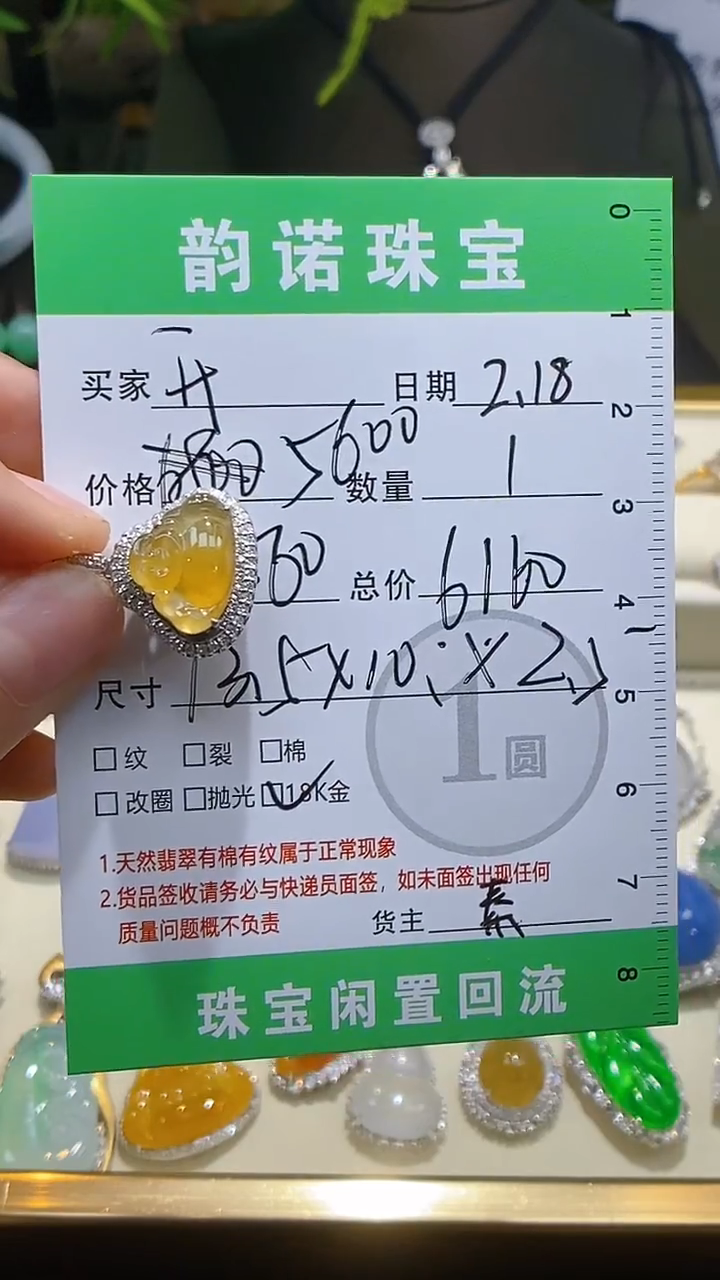 韵诺珠宝
买家 日期 2.18
价格 5600 数量 1
60 总价 6160
尺寸 13.5×10.×2.
1圆
纹 裂 棉
改圈 抛光 18K金
1.天然翡翠有棉有纹属于正常现象
2.货品签收请务必与快递员面签，如未面签出现任何
质量问题概不负责
货主
珠宝闲置回流
0
1
2
3
4
5
6
7
8